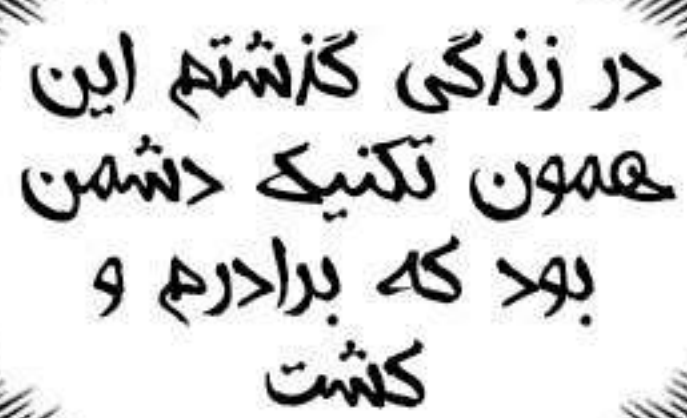 در زندگی گذشتم این
همون تکنیک دشمن
بود که برادرم و
کشت